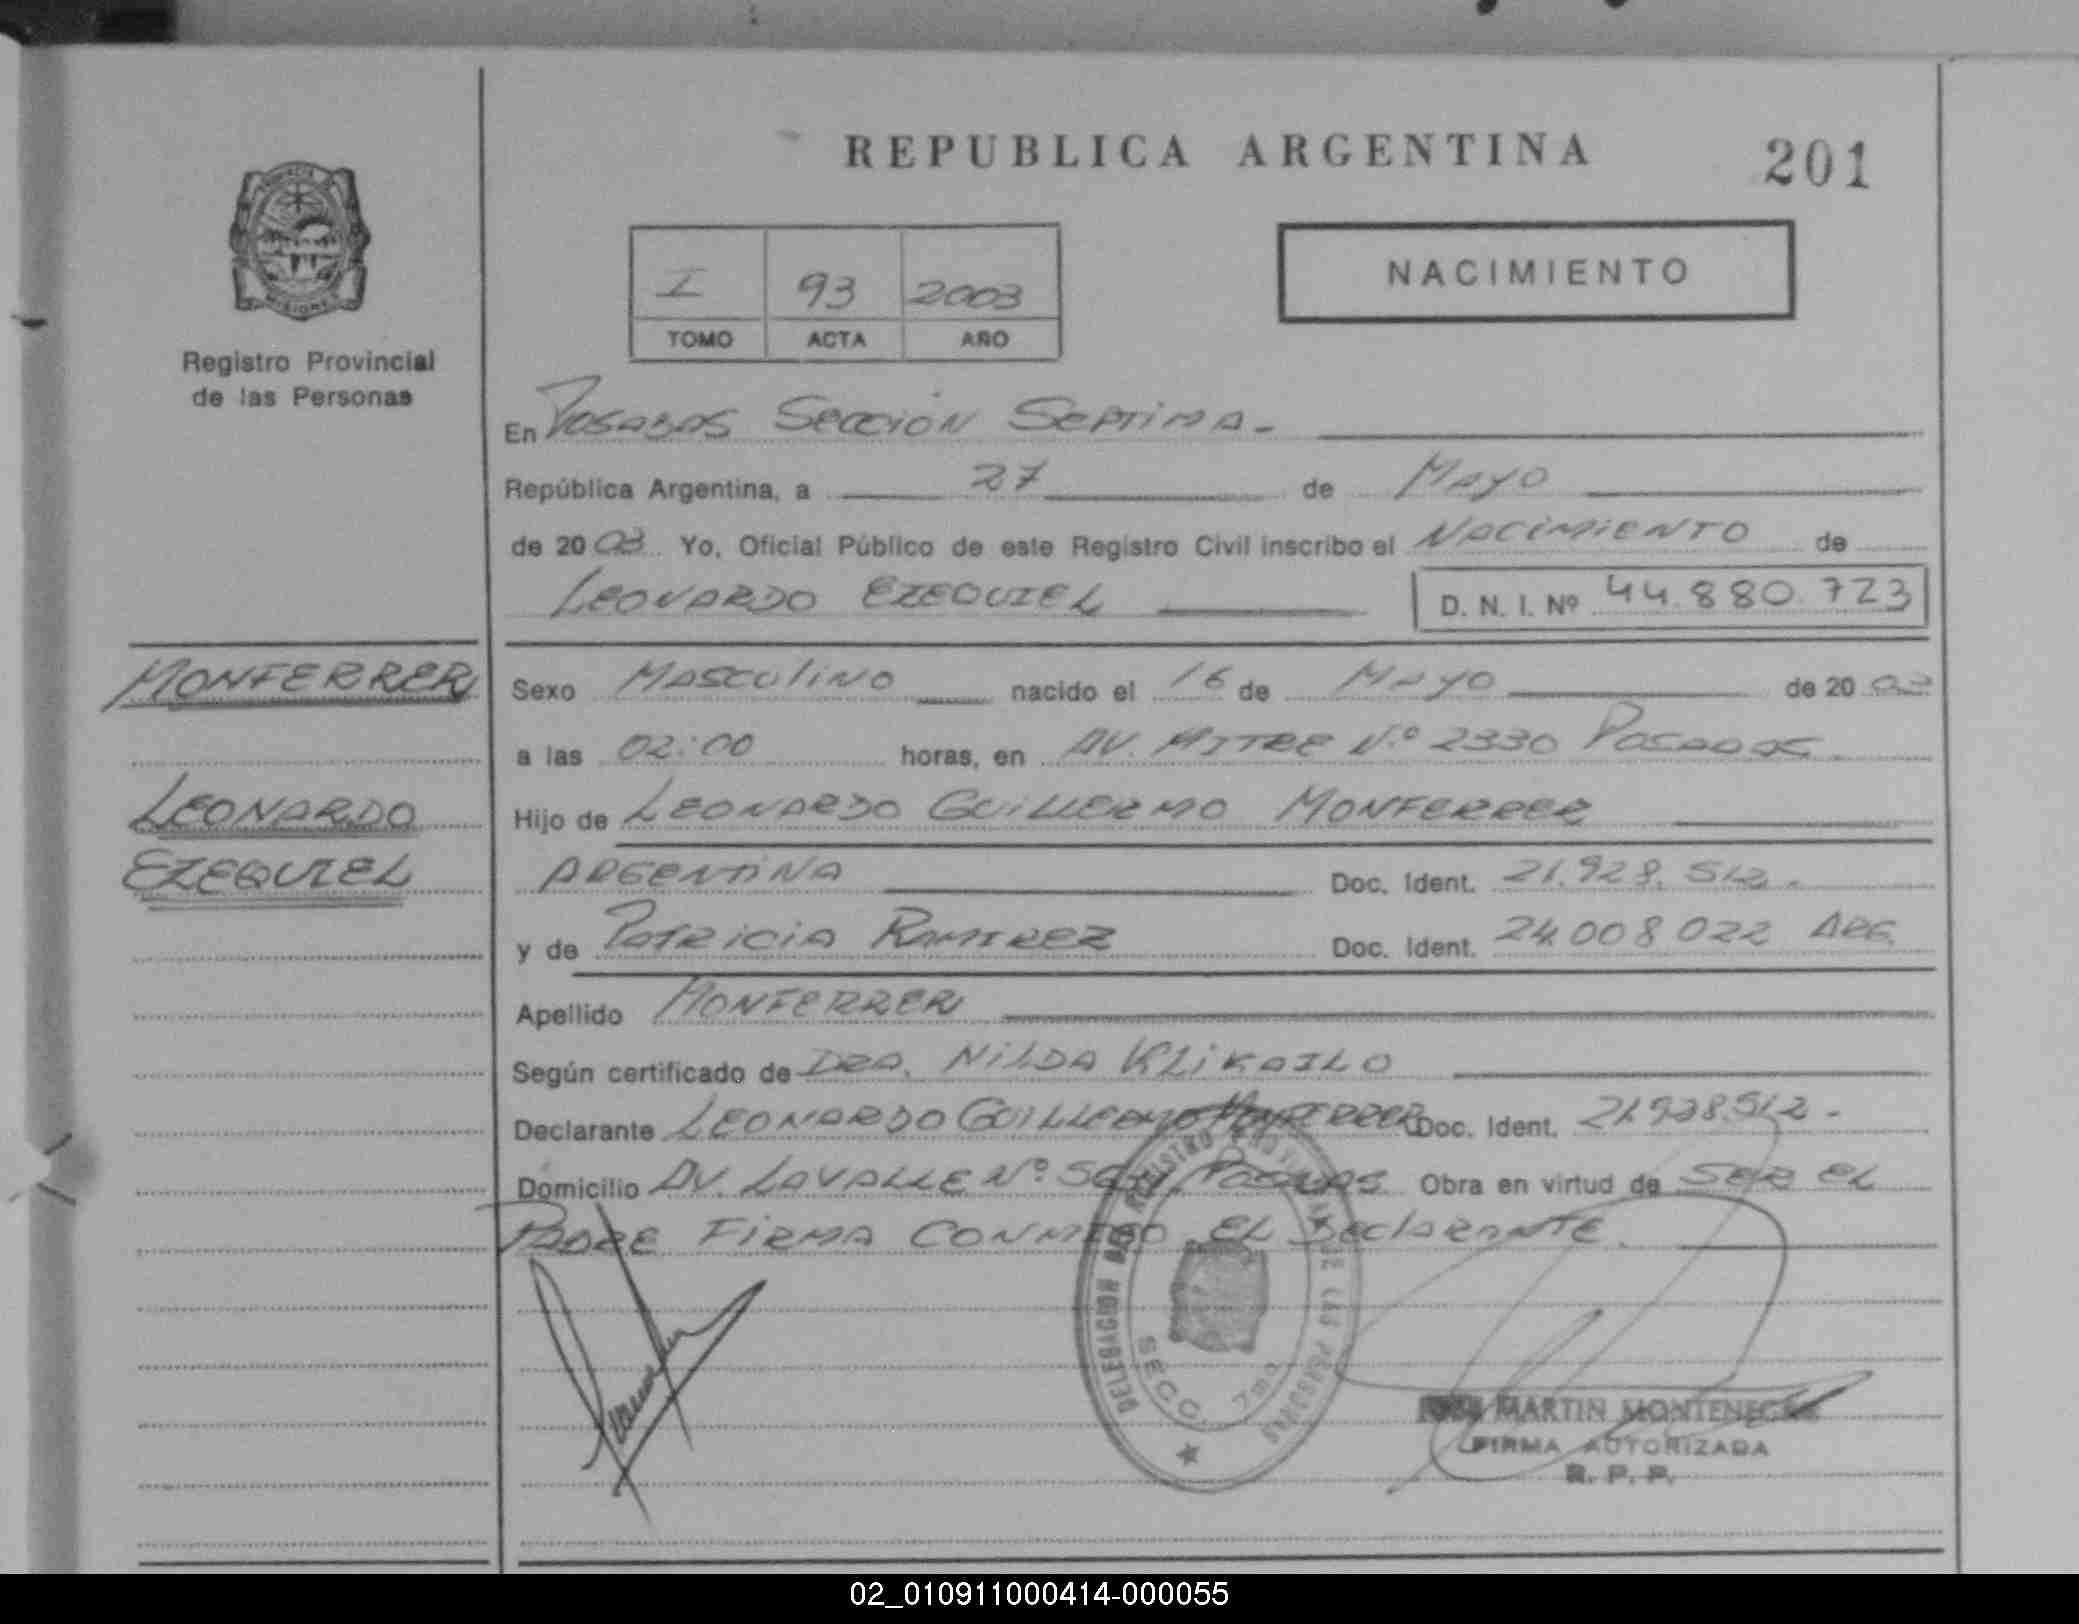 REPUBLICA ARGENTINA
201
PROVINCIA DE
MISIONES
Registro Provincial
de las Personas
I 93 2003
TOMO ACTA AÑO
NACIMIENTO
En Posadas Sección Septima.
República Argentina, a 27 de Mayo
de 2003. Yo, Oficial Público de este Registro Civil inscribo el Nacimiento de
Leonardo Ezequiel D. N. I. Nº 44.880.723
MONFERRER
LEONARDO
EZEQUIEL
Sexo Masculino nacido el 16 de Mayo de 2003
a las 02:00 horas, en AV. MITRE N.º 2330 Posadas
Hijo de Leonardo Guillermo Monferrer
Argentina Doc. Ident. 21.928.512.
y de Patricia Ramirez Doc. Ident. 24.008.022 Arg.
Apellido Monferrer
Según certificado de Dra. Nilda
Declarante Leonardo Guillermo Monferrer Doc. Ident. 21.928512.
Domicilio AV. Lavalle Nº Posadas Obra en virtud de ser el
Padre Firma conmigo el declarante.
DELEGACION DEL REGISTRO PROVINCIAL DE LAS PERSONAS
SECC. 7ma
MARTIN MONTENEGRO
FIRMA AUTORIZADA
R. P. P.
02_010911000414-000055